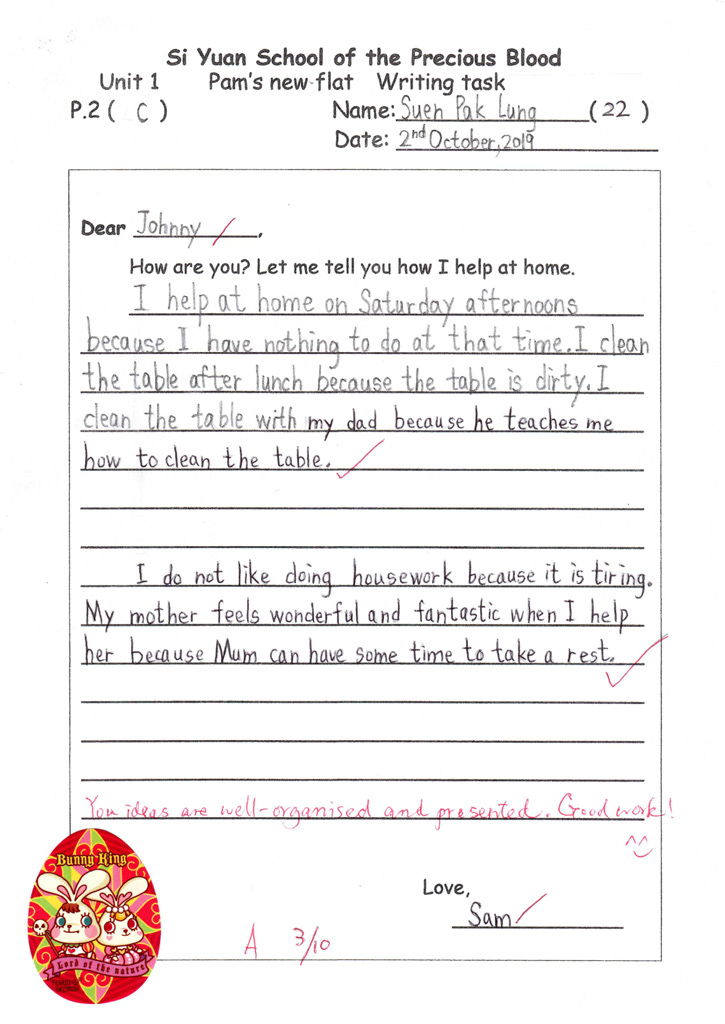 Si Yuan School of the Precious Blood
Unit 1 Pam's new flat Writing task
P.2 ( C ) Name: Suen Pak Lung ( 22 )
Date: 2nd October, 2019
Dear Johnny ,
How are you? Let me tell you how I help at home.
I help at home on Saturday afternoons
because I have nothing to do at that time. I clean
the table after lunch because the table is dirty. I
clean the table with my dad because he teaches me
how to clean the table.
I do not like doing housework because it is tiring.
My mother feels wonderful and fantastic when I help
her because Mum can have some time to take a rest.
You ideas are well-organised and presented. Good work!
^^
Bunny King
Lord of the nature
Love,
Sam
A 3/10